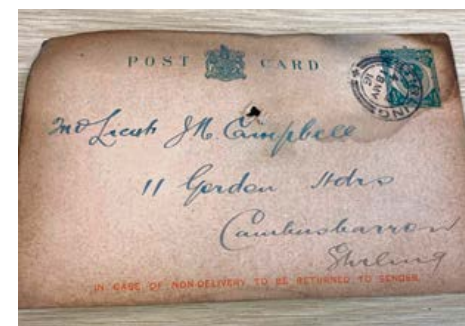 POST CARD
STIRLING
18 MY
16
2nd Lieut J M Campbell
11 Gordon Hdrs
Cambusbarron
Stirling
IN CASE OF NON-DELIVERY TO BE RETURNED TO SENDER.